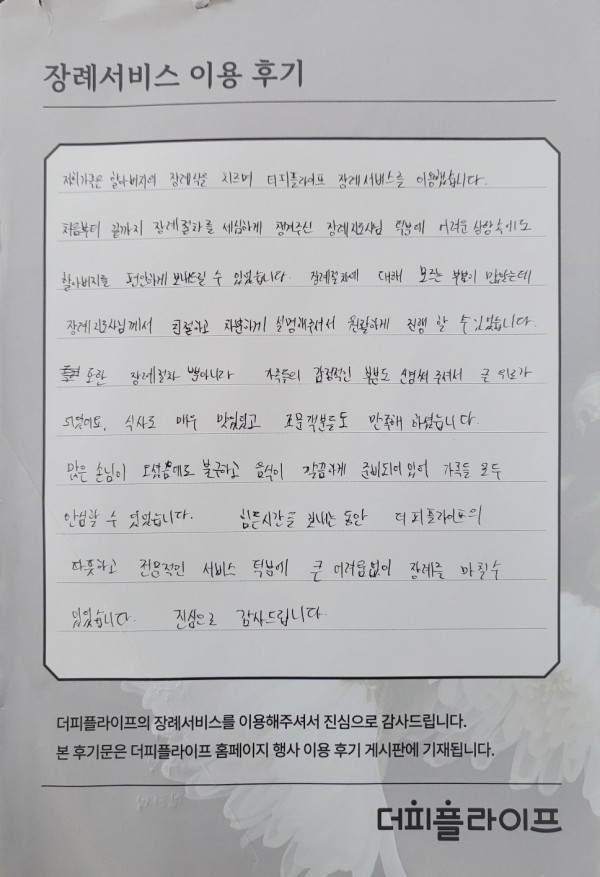 장례서비스 이용 후기
저희가족은 할아버지의 장례식을 치르며 더피플라이프 장례서비스를 이용했습니다.
처음부터 끝까지 장례절차를 세심하게 챙겨주신 장례지도사님 덕분에 어려운 상황속에도
할아버지를 편안하게 보내드릴 수 있었습니다. 장례절차에 대해 모르는 부분이 많았는데
장례지도사님께서 친절하고 차분하게 설명해주셔서 원활하게 진행 할 수 있었습니다.
또한 장례절차 뿐아니라 가족들의 감정적인 부분도 신경써 주셔서 큰 위로가
되었어요. 식사도 매우 맛있었고 조문객분들도 만족해 하셨습니다.
많은 손님이 오셨음에도 불구하고 음식이 깔끔하게 준비되어 있어 가족들 모두
안심할 수 있었습니다. 힘든시간을 보내는 동안 더피플라이프의
따뜻하고 전문적인 서비스 덕분에 큰 어려움없이 장례를 마칠수
있었습니다. 진심으로 감사드립니다
더피플라이프의 장례서비스를 이용해주셔서 진심으로 감사드립니다.
본 후기문은 더피플라이프 홈페이지 행사 이용 후기 게시판에 기재됩니다.
더피플라이프